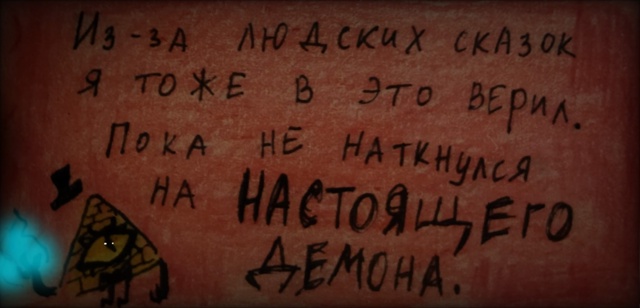 Из-за людских сказок
я тоже в это верил.
Пока не наткнулся
на НАСТОЯЩЕГО
ДЕМОНА.